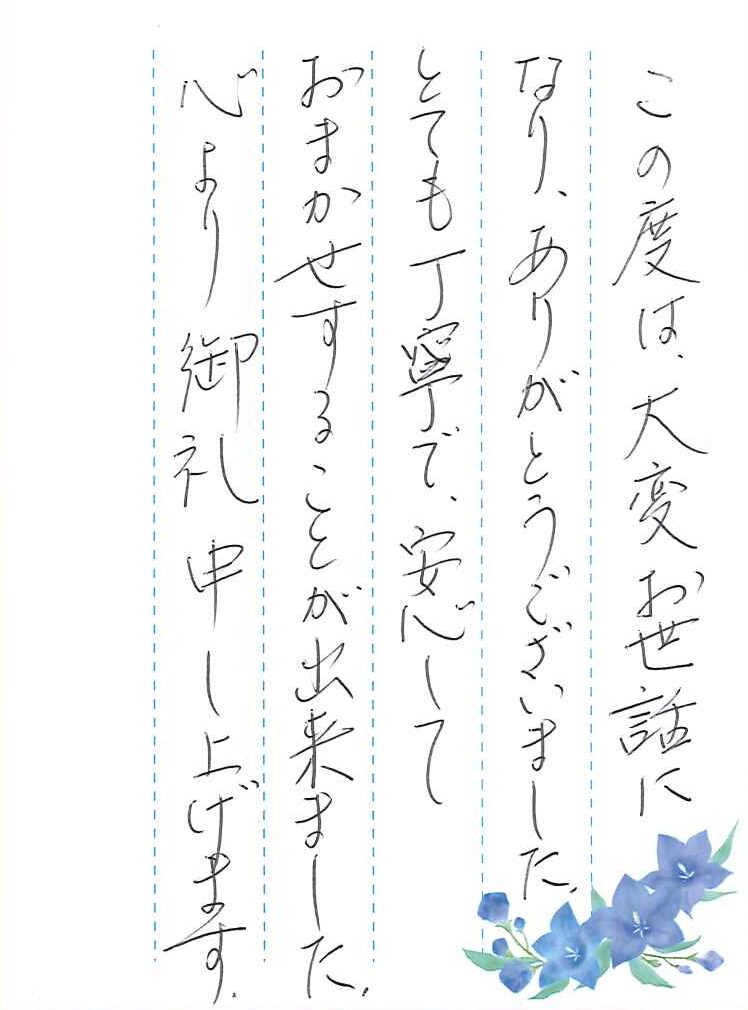 この度は、大変お世話に
なり、ありがとうございました。
とても丁寧で、安心して
おまかせすることが出来ました。
心より御礼申し上げます。